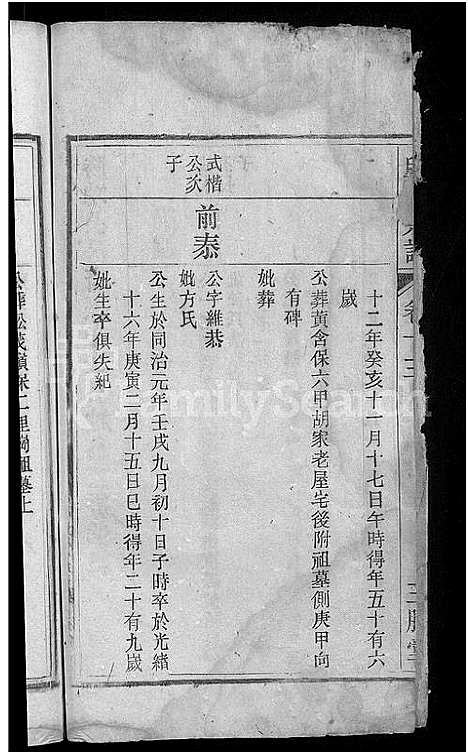 卷十三
十二年癸亥十一月十七日午時得年五十有六
歲
公葬黃含保六甲胡家老屋宅後附祖墓側庚甲向
有碑
妣葬
式楷
公次
子
前泰
公字維恭
妣方氏
公生於同治元年壬戌九月初十日子時卒於光緒
十六年庚寅二月十五日巳時得年二十有九歲
妣生卒俱失紀
公葬松茂嶺保二里崗祖墓上
FamilySearch